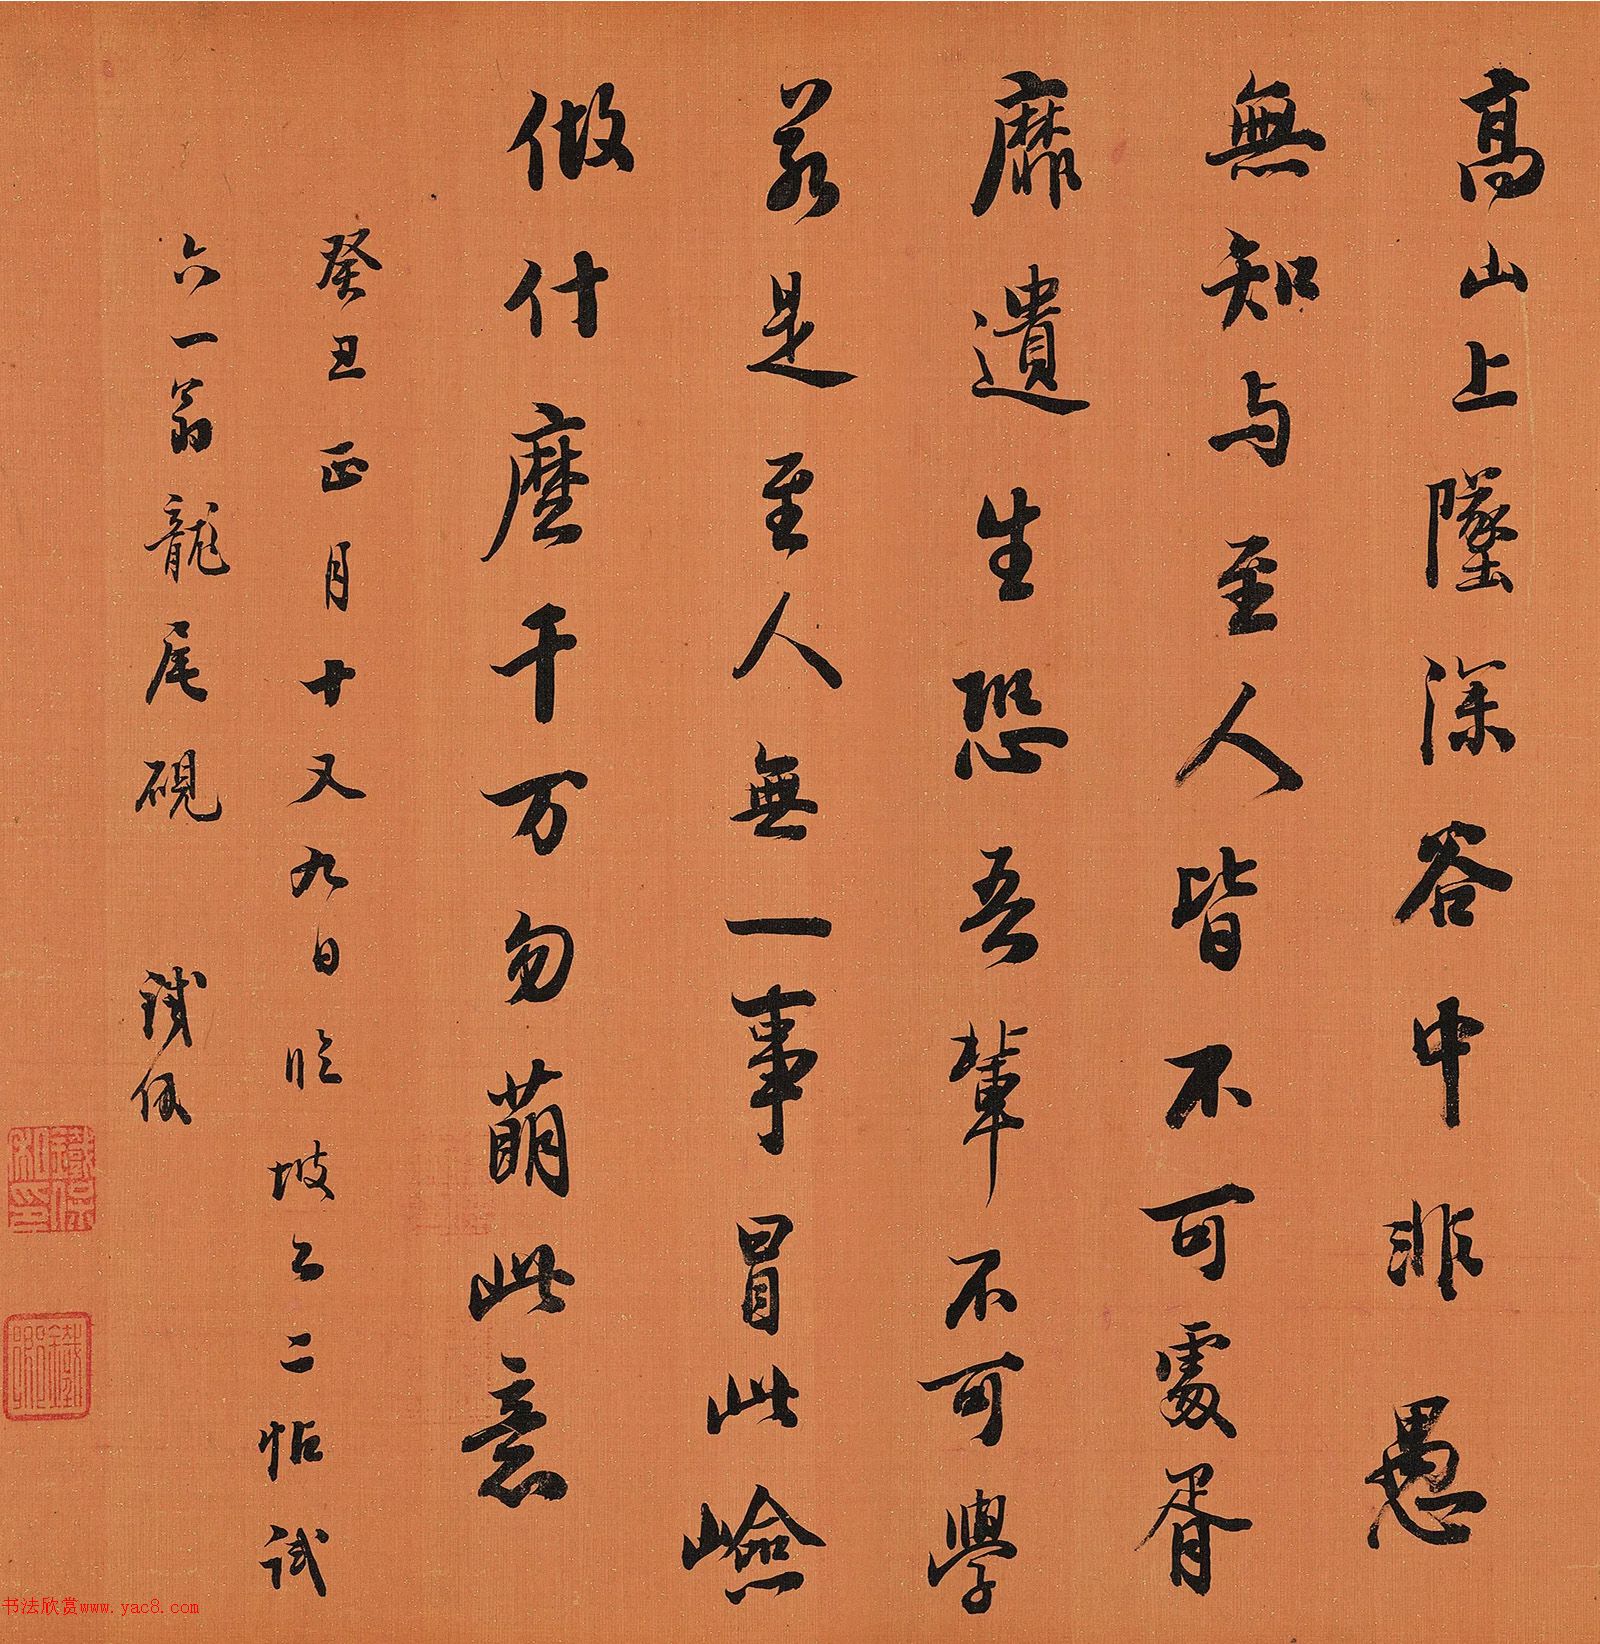 高山上墜深谷中非愚
無知与至人皆不可處胥
靡遺生恐吾輩不可學
若是至人無一事冒此嶮
做什麼千万勿萌此意
癸丑正月十又九日臨坡公二帖試
六一翁龍尾硯 鐵保
鐵保私印
鐵卿
书法欣赏www.yac8.com